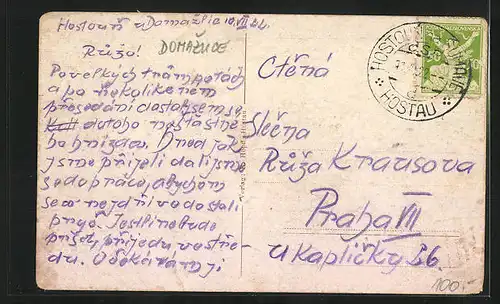 Hostouň u Domažlic 10.VII 22.
Růžo! DOMAŽLICE
Po velkých trámpotách
a po několikerém
přesedání dostali jsme se
do toho nešťastné
ho hnízda. Dnes jak
jsme přijeli dali jsme
se do práce, abychom
se co nejdřív dostali
pryč. Jestli nebude
pršet, přijedu ve stře-
du. Očekávám ji
Ctěná
Slečna
Růža Krausova
Praha VII
u Kapličky 36.
HOSTOUŇ
HOSTAU
100.-